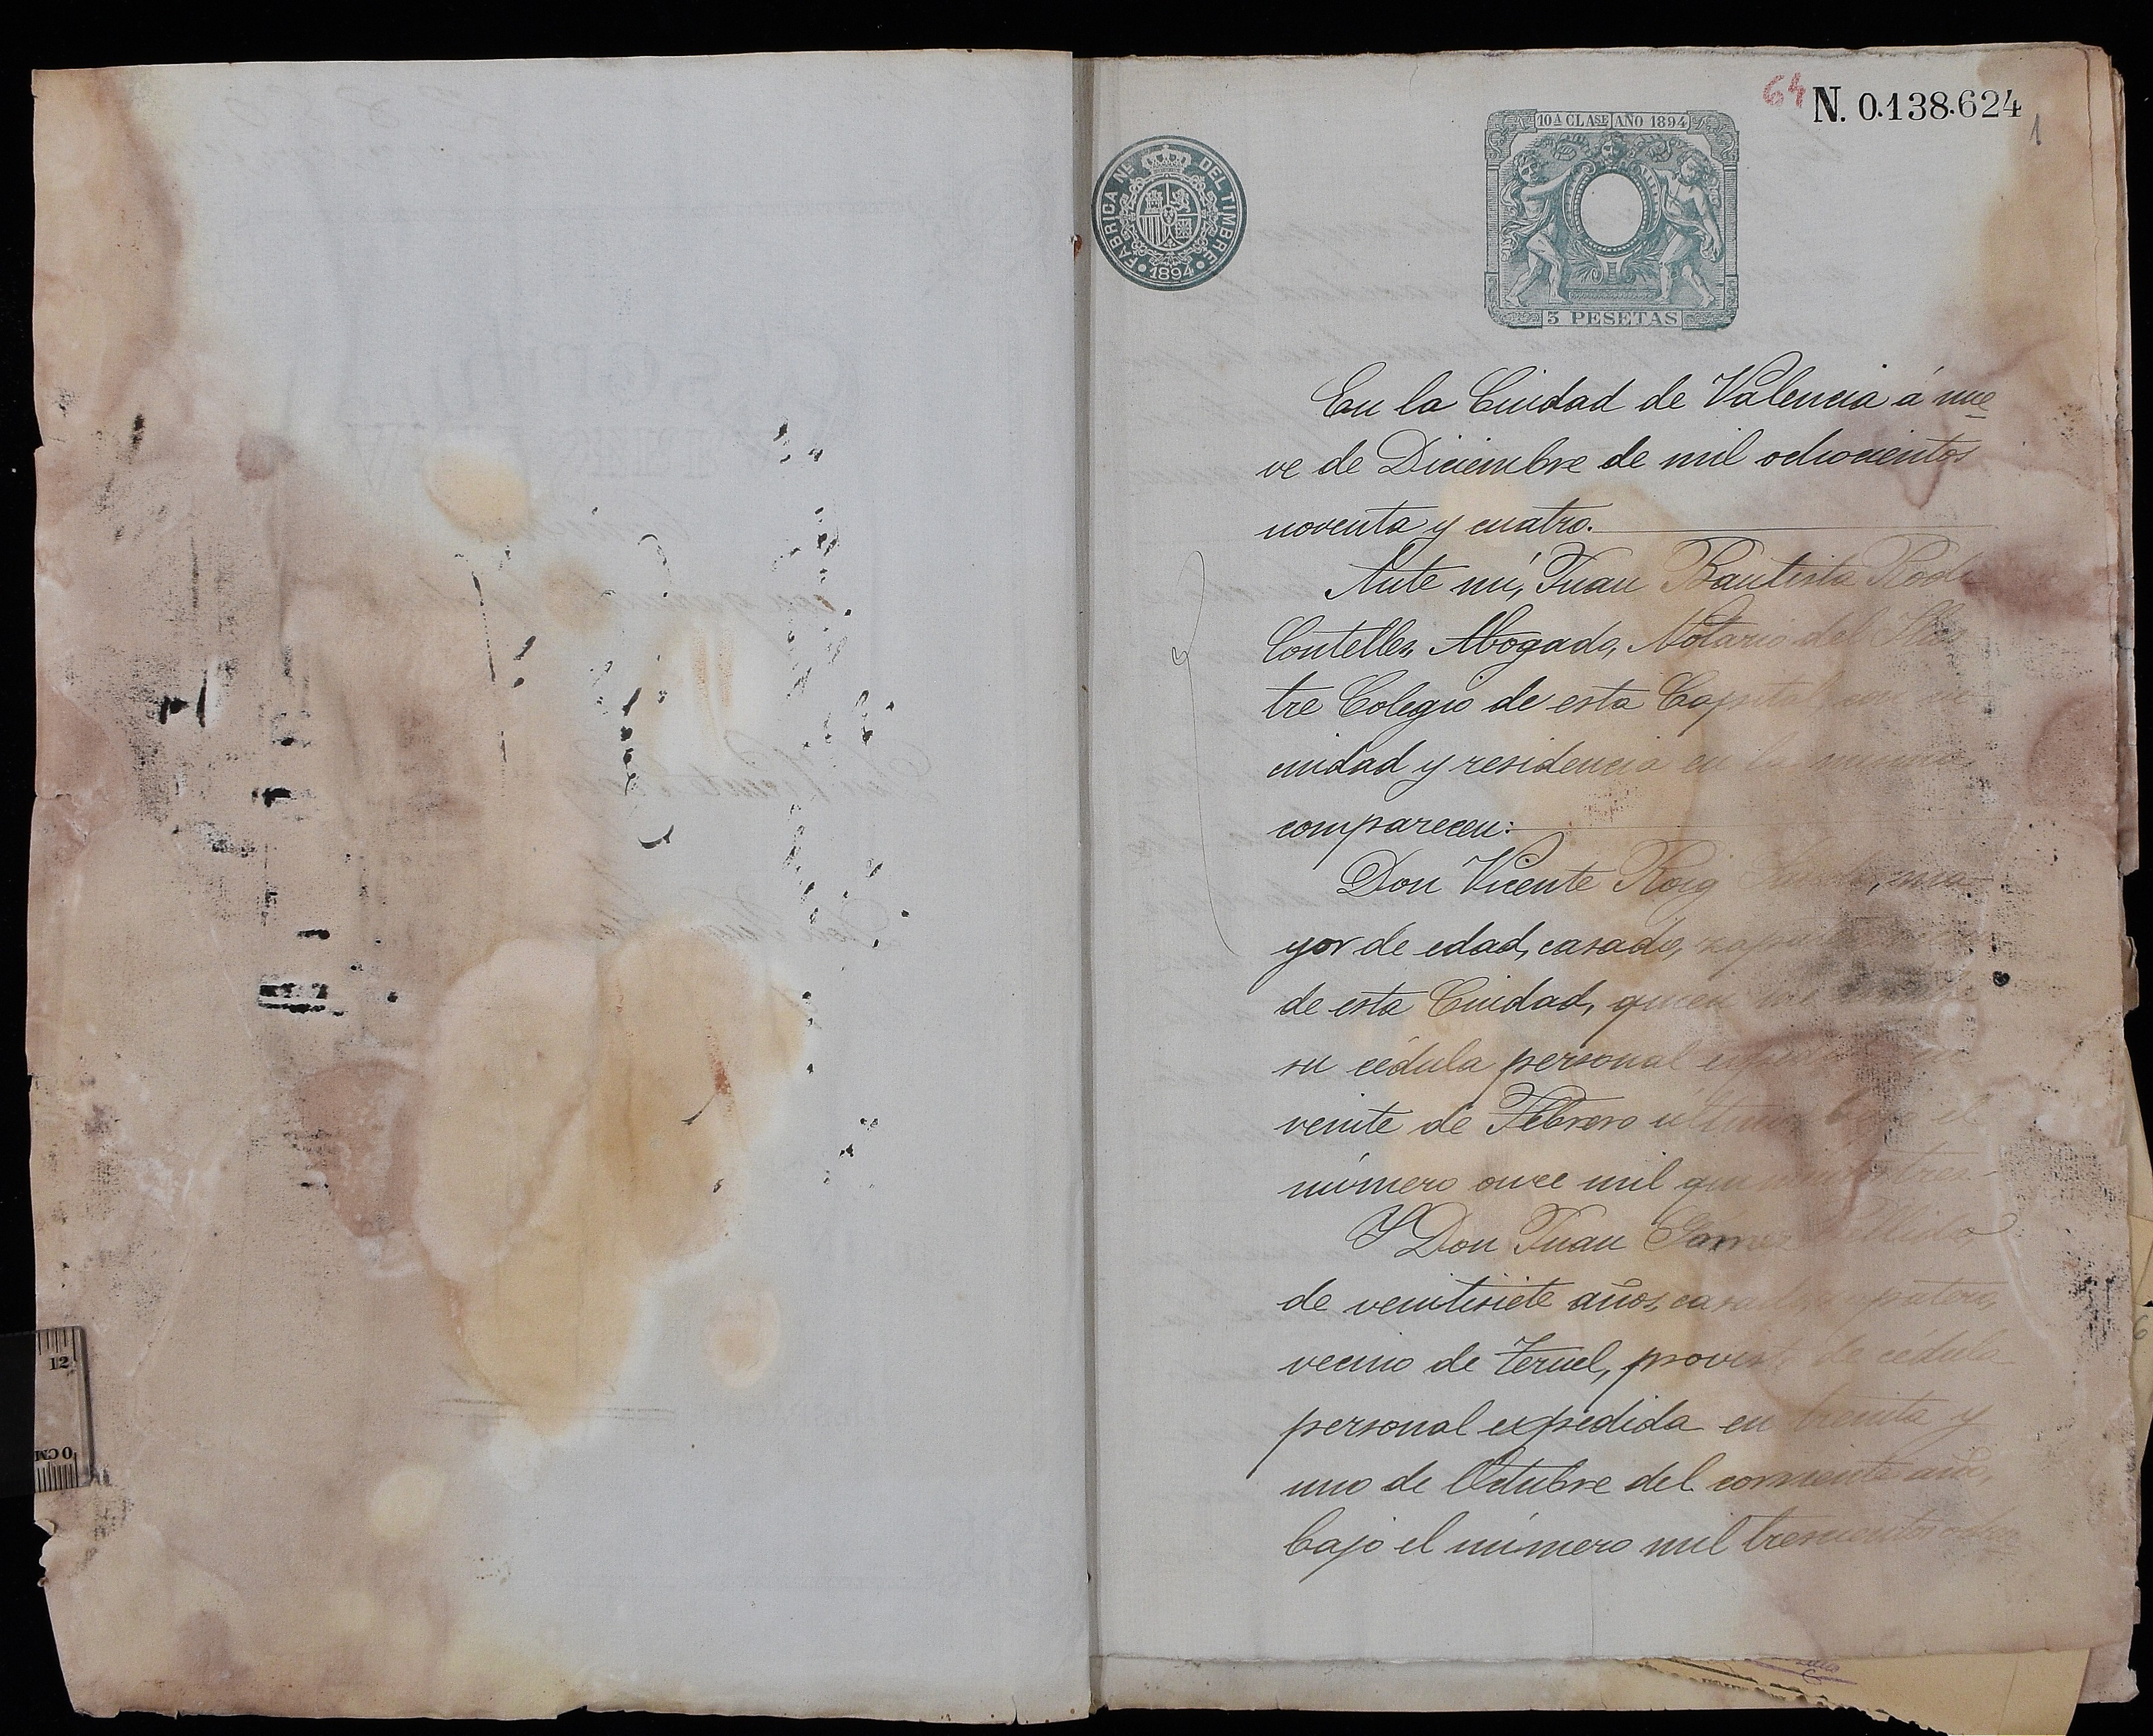 64 N. 0.138.624
1
10A CLASE AÑO 1894
FABRICA NL. DEL TIMBRE
1894
3 PESETAS
En la Ciudad de Valencia á nue
ve de Diciembre de mil ochocientos
noventa y cuatro.
Ante mí, Juan Bautista Roch
Contelles, Abogado, Notario del Ilus
tre Colegio de esta Capital, con
cindad y residencia en la misma
comparecen:
Don Vicente Roig ma
yor de edad, casado,
de esta Ciudad, quien
su cédula personal expedida en
veinte de Febrero último bajo el
número once mil quinientos tres.
Y Don Juan Gómez
de veintisiete años, casado, zapatero,
vecino de Teruel, provisto de cédula
personal expedida en treinta y
uno de Octubre del corriente año,
bajo el número mil trescientos ocho
12
0 CM